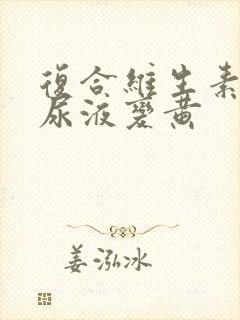 復合維生素
尿液變黃
姜泓冰